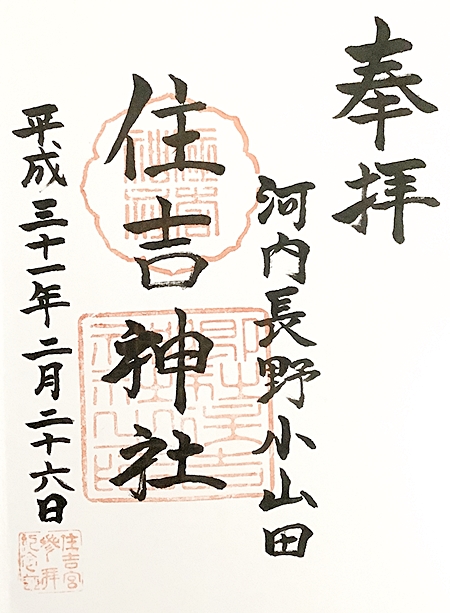 奉拝
河内長野小山田
住吉神社
平成三十一年二月二十六日
住吉宮
参拝
記念